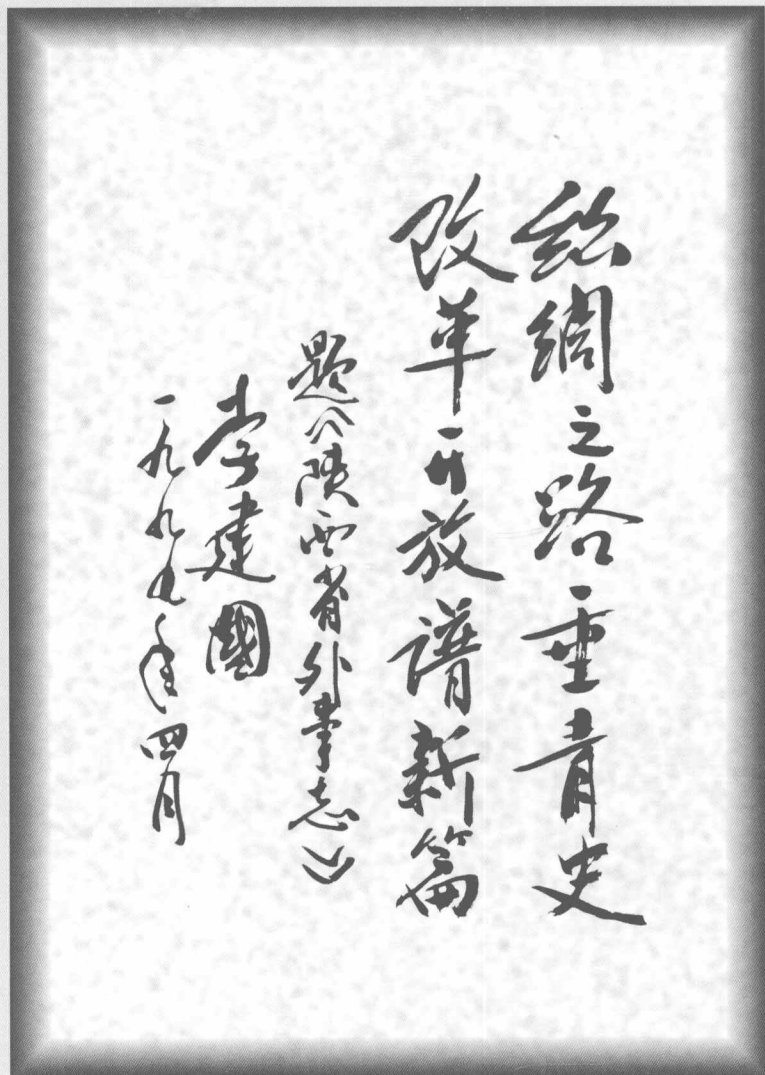 丝绸之路垂青史
改革开放谱新篇
题《陕西省外事志》
李建国
一九九九年四月